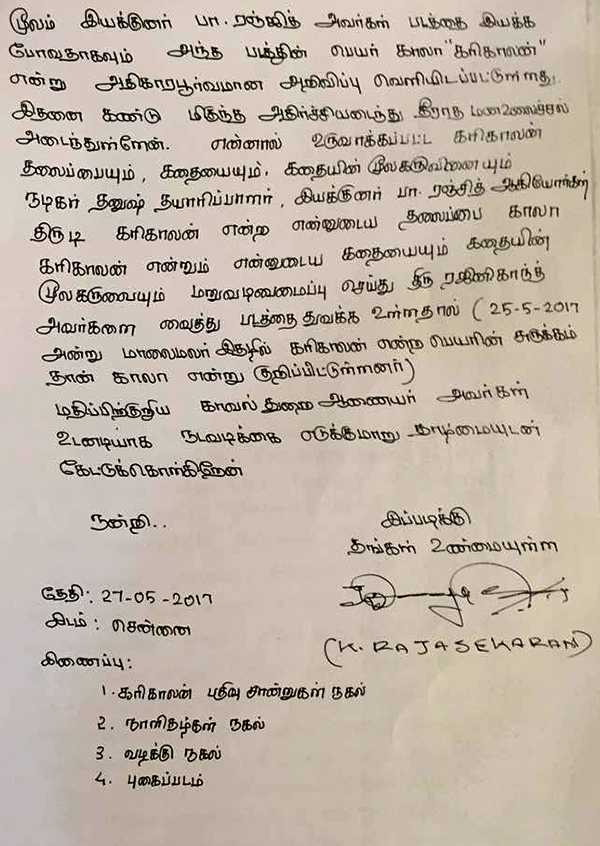 மூலம் இயக்குனர் பா. ரஞ்ஜித் அவர்கள் படத்தை இயக்க
போவதாகவும் அந்த படத்தின் பெயர் காலா "கரிகாலன்"
என்று அதிகாரபூர்வமான அறிவிப்பு வெளியிடப்பட்டுள்ளது.
இதனை கண்டு மிகுந்த அதிர்ச்சியடைந்து தீராத மனஉலைச்சல்
அடைந்துள்ளேன். என்னால் உருவாக்கப்பட்ட கரிகாலன்
தலைப்பையும், கதையையும், கதையின் மூலகருவினையும்
நடிகர் தனுஷ் தயாரிப்பாளர், இயக்குனர் பா. ரஞ்சித் ஆகியோர்கள்
திருடி கரிகாலன் என்ற என்னுடைய தலைப்பை காலா
கரிகாலன் என்றும் என்னுடைய கதையையும் கதையின்
மூலகருவையும் மறுவடிவமைப்பு செய்து திரு ரஜினிகாந்த்
அவர்களை வைத்து படத்தை துவக்க உள்ளதால் (25-5-2017
அன்று மாலைமலர் இதழில் கரிகாலன் என்ற பெயரின் சுருக்கம்
தான் காலா என்று குறிப்பிட்டுள்ளனர்)
மதிப்பிற்குறிய காவல் துறை ஆணையர் அவர்கள்
உடனடியாக நடவடிக்கை எடுக்குமாறு தாழ்மையுடன்
கேட்டுக்கொள்கிறேன்
நன்றி.. இப்படிக்கு
தங்கள் உண்மையுள்ள
தேதி: 27-05-2017
இடம்: சென்னை
(K. RAJASEKARAN)
இணைப்பு:
1. கரிகாலன் பதிவு சான்றுகள் நகல்
2. நாளிதழ்கள் நகல்
3. வழக்கு நகல்
4. புகைப்படம்